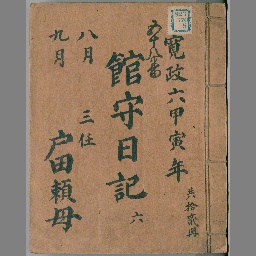 寛政六甲寅年
共拾貳冊
館守日記
六
八月
九月
三任
戸田頼母